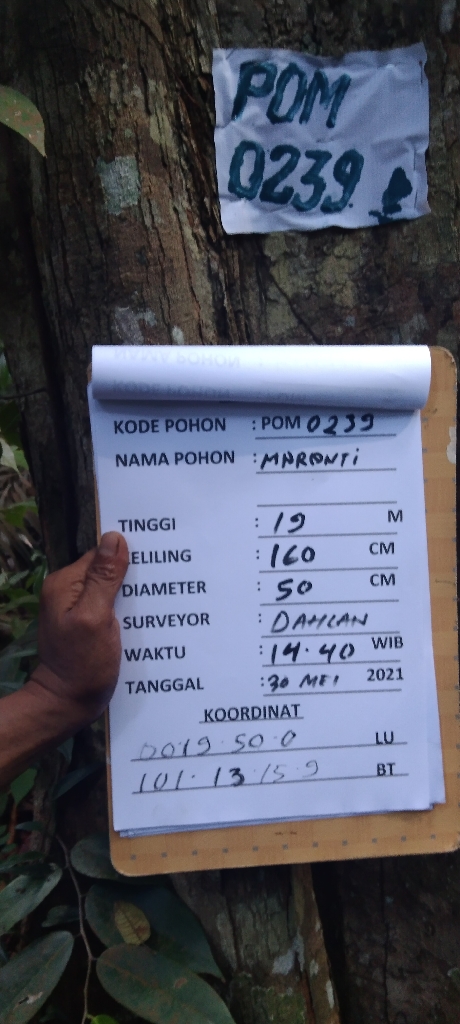 POM
0239
KODE POHON : POM 0239
NAMA POHON : MARONTI
TINGGI : 19 M
KELILING : 160 CM
DIAMETER : 50 CM
SURVEYOR : DAHLAN
WAKTU : 14.40 WIB
TANGGAL : 30 MEI 2021
KOORDINAT
0019.50.0 LU
101.13.15.9 BT